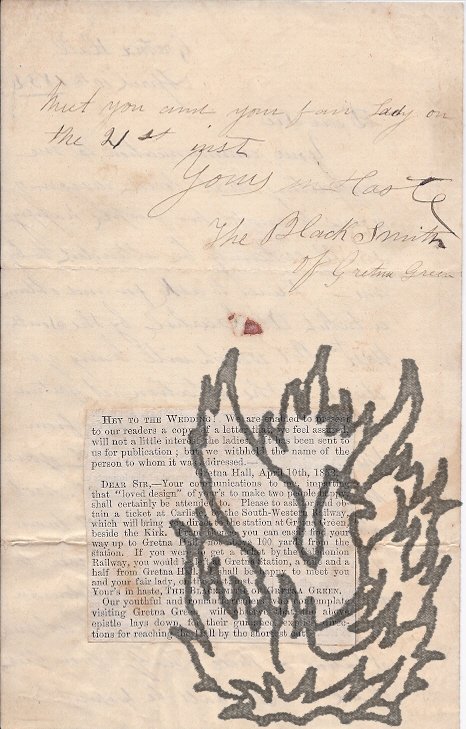 Meet you and your fair Lady on
the 21st inst
Yours in Haste
The Black Smith
of Gretna Green
HEY TO THE WEDDING! We are enabled to
to our readers a copy of a letter that we feel assured
will not a little interest the ladies. It has been sent to
us for publication; but we withhold the name of the
person to whom it was addressed.—
Gretna Hall, April 10th,
DEAR SIR,—Your communications to the
that "loved design" of your's to make two people
shall certainly be attended to. Please to ask for and ob-
tain a ticket at Carlisle by the South-Western Railway,
which will bring you direct to the station at Gretna Green,
beside the Kirk. From there you can easily find your
way up to Gretna Hall, not above 100 yards from the
station. If you were to get a ticket by the Caledonian
Railway, you would be at the Gretna station, a mile and a
half from Gretna Hall. I shall be happy to meet you
and your fair lady, on the inst.
Your's in haste, THE OF GRETNA GREEN.
Our youthful and romantic who contemplate
visiting Gretna Green, will observe that the above
epistle lays down, for their guidance, explicit direc-
tions for reaching the Hall by the shortest